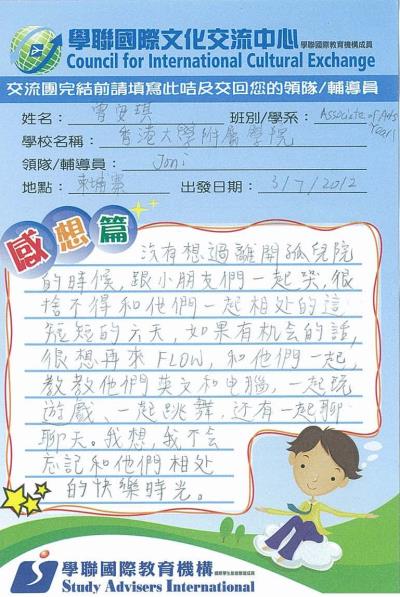 學聯國際文化交流中心 學聯國際教育機構成員
Council for International Cultural Exchange
交流團完結前請填寫此咭及交回您的領隊/輔導員
姓名： 曾安琪 班別/學系： Associate of Arts
Year1
學校名稱： 香港大學附屬學院
領隊/輔導員： Joni
地點： 柬埔寨 出發日期： 3/7/2012
感想篇
沒有想過離開孤兒院
的時候，跟小朋友們一起哭，很
捨不得和他們一起相处的這
短短的六天，如果有机会的話，
很想再來FLOW，和他們一起，
教教他們英文和电腦，一起玩
遊戲、一起跳舞，还有一起聊
聊天。我想，我不会
忘記和他們相处
的快樂時光。
學聯國際教育機構
Study Advisers International